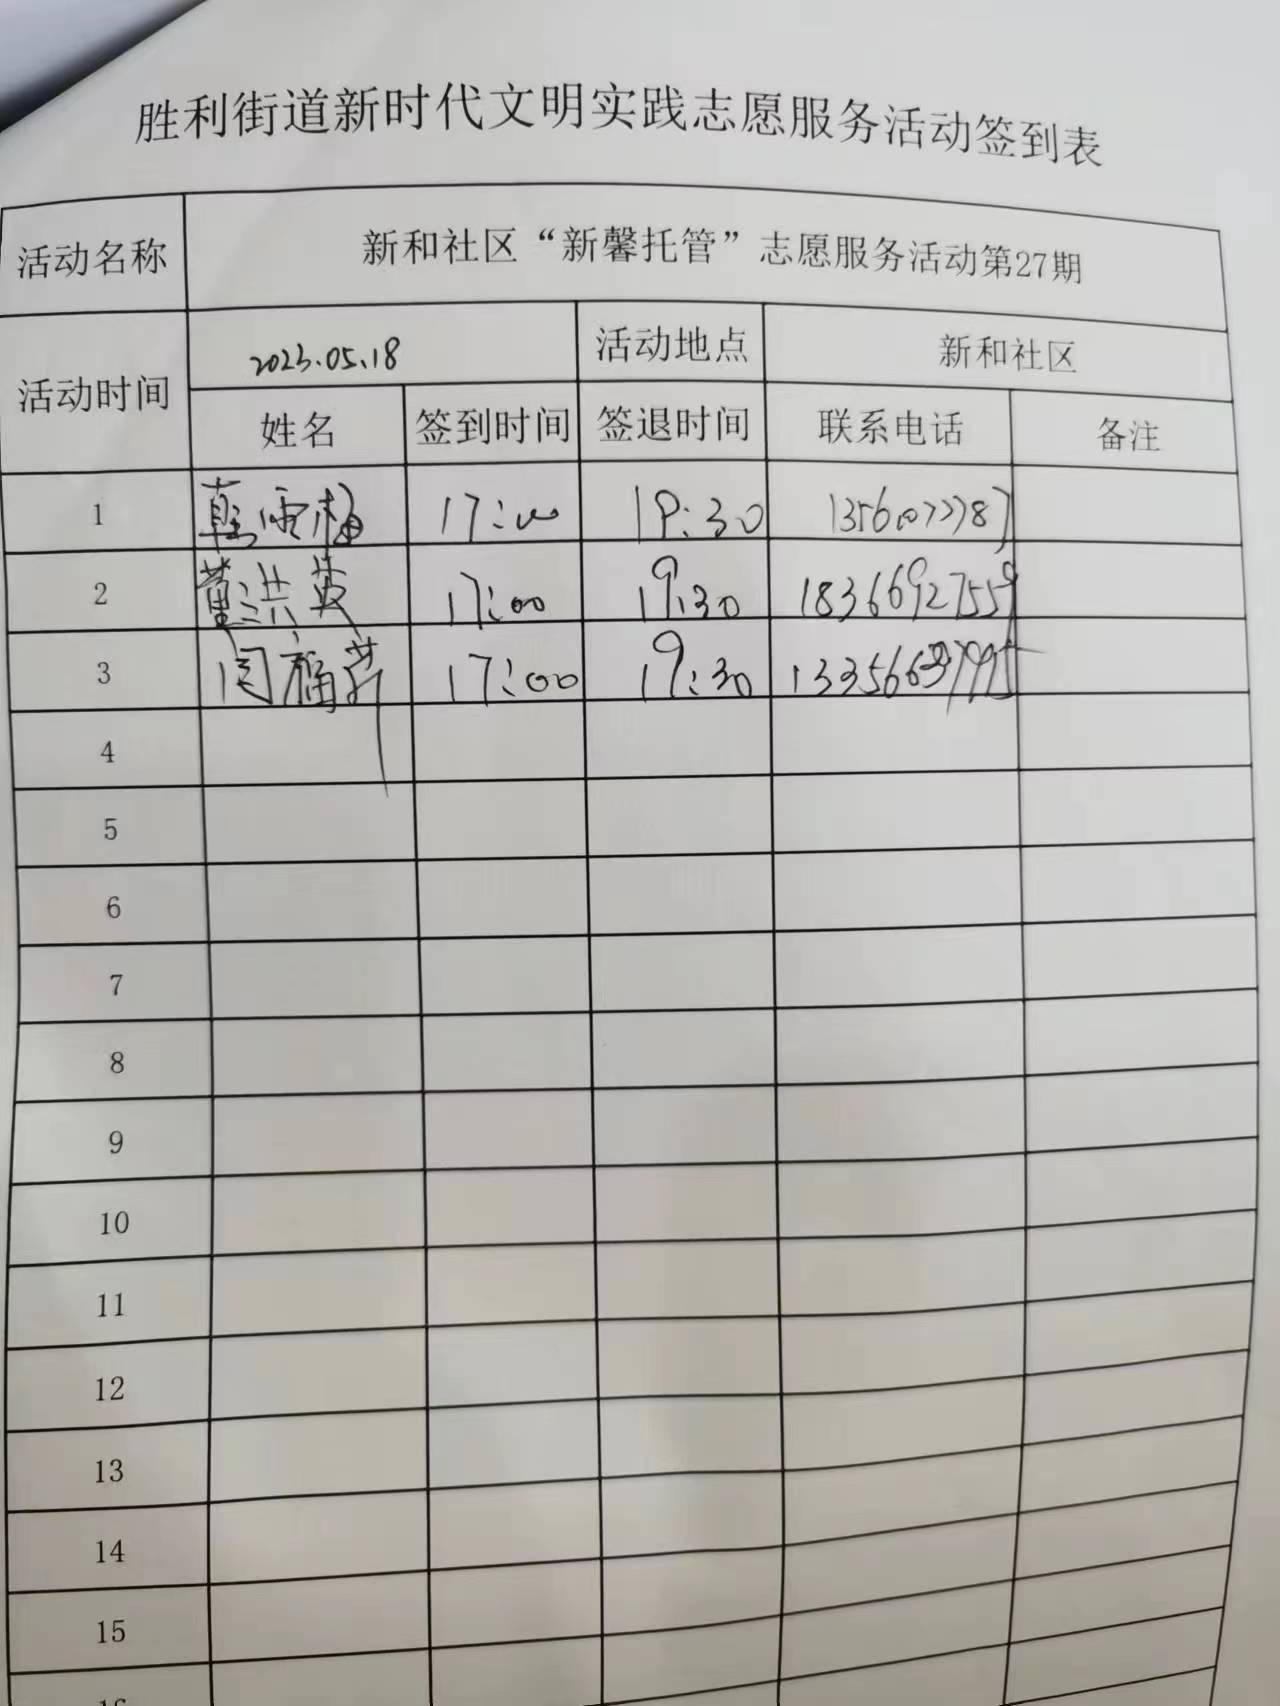 胜利街道新时代文明实践志愿服务活动签到表
活动名称 新和社区“新馨托管”志愿服务活动第27期
活动时间 2023.05.18 活动地点 新和社区
姓名 签到时间 签退时间 联系电话 备注
1 韩雪梅 17:00 19:30
2 董洪英 17:00 19:30 18366927559
3 闫福芹 17:00 19:30
4
5
6
7
8
9
10
11
12
13
14
15
16